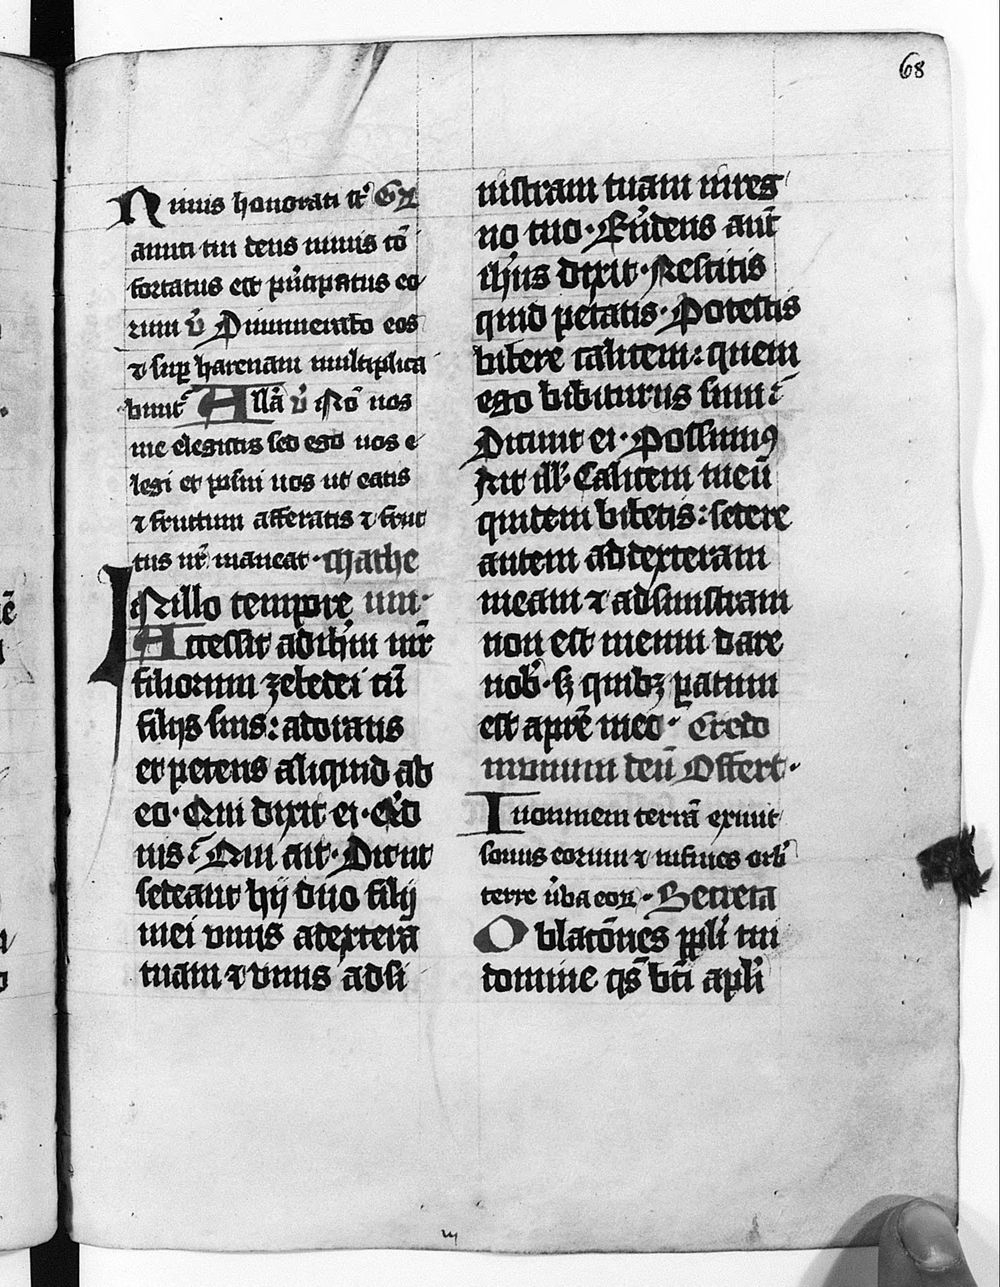 68
Nimis honorati st̄ Gꝝ
amici tui deus nimis cō
fortatus est pͥncipatus eo
rum v̓ Dinumerabo eos
⁊ suꝑ harenam multiplica
bunt᷑ Allā v̓ Nō vos
me elegistis sed ego vos e
legi et posui vos ut eatis
⁊ fructum afferatis ⁊ fruc
tus vr̄ maneat · Mathe
IN illo tempore
Accessit ad ihm̄ mr̄
filiorum zebedei cū
filijs suis: adorans
et petens aliquid ab
eo · Qui dixit ei · Qͥd
vis Que ait · Dic ut
sedeant hij duo filij
mei vnus adexterā
tuam ⁊ vnus ad si
nistram tuam in reg
no tuo · Rn̄dens aut̄
ih̄us dixit · Nescitis
quid petatis · Potestis
bibere calicem: quem
ego bibiturus sum
Dicunt ei · Possumꝰ
Ait ill̓ · Calicem meū
quidem bibetis: sedere
autem ad dexteram
meam ⁊ ad sinistram
non est meum dare
vob̓ · sꝫ quibꝫ ꝑatum
est a pr̄e meo · Credo
in vnum deū Offert ·
In omnem terrā exiuit
sonus eorum ⁊ in fines orb̓
terre v̓ba eoꝝ · Secreta
Oblatōnes ppl̓i tui
domine qs̄ bt̄i apl̓i